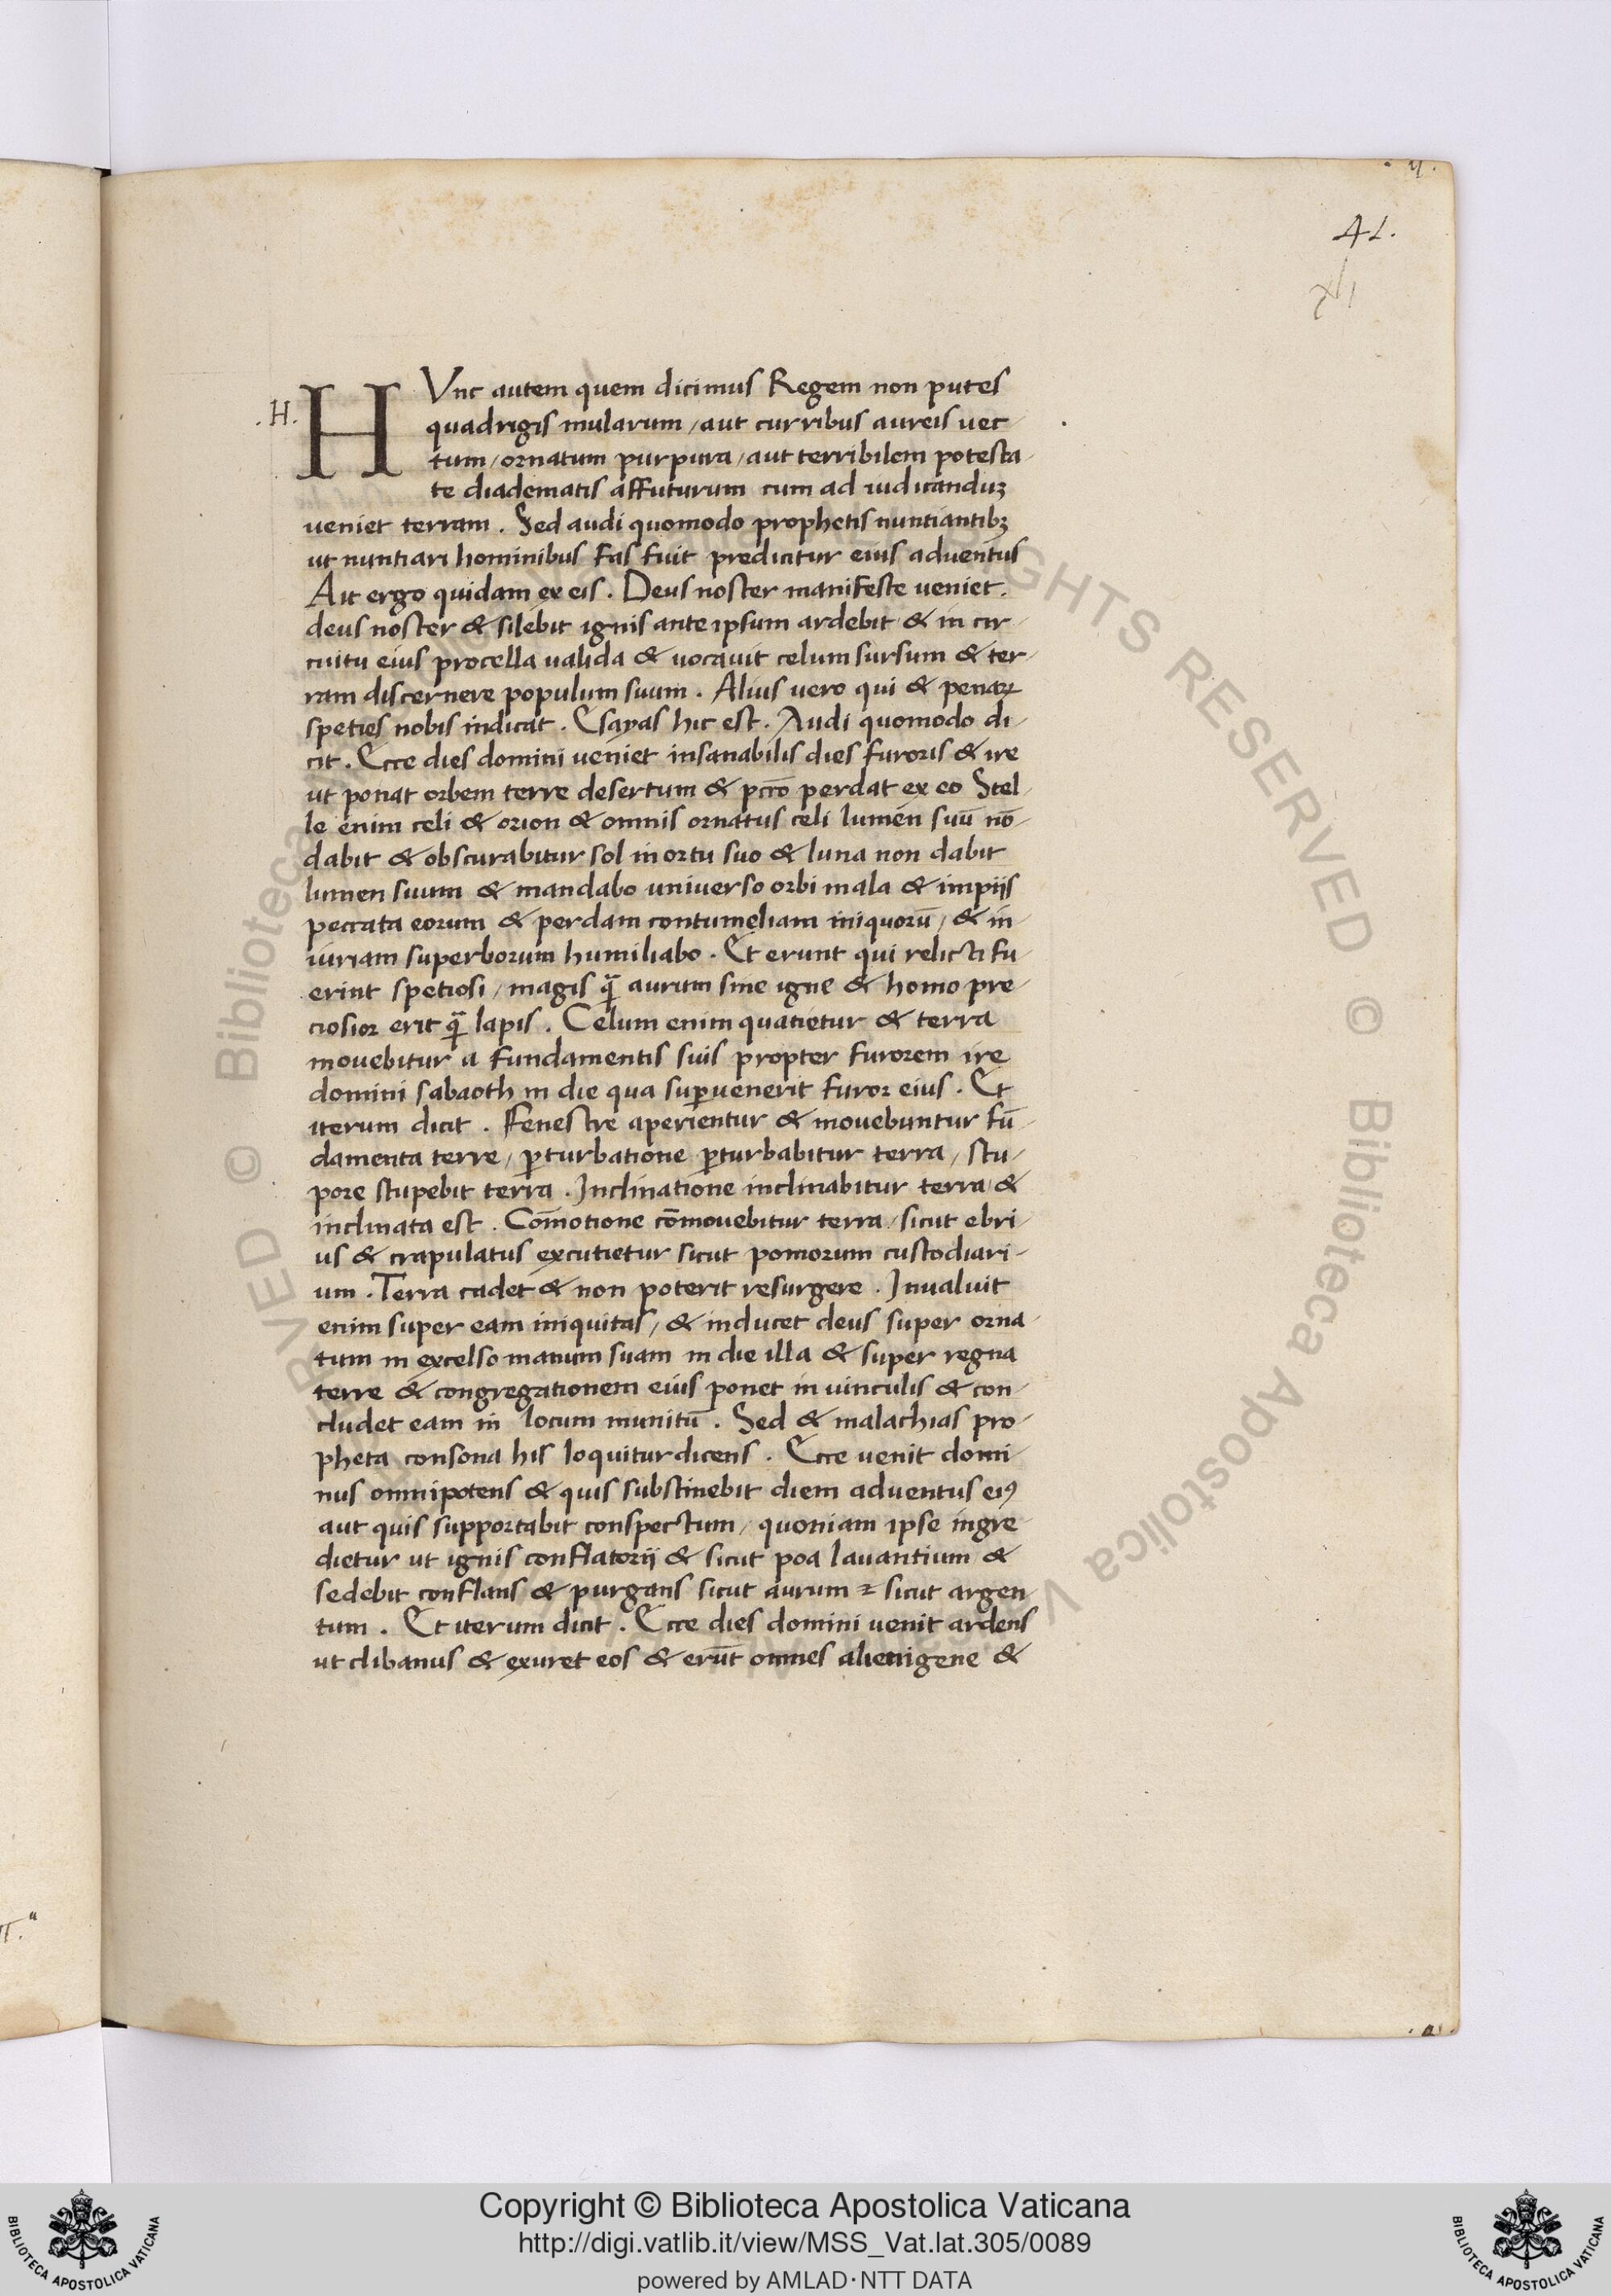 41.
.H.
HVnc autem quem dicimus Regem non putes
quadrigis mularum, aut curribus aureis vec
tum, ornatum purpura, aut terribilem potesta
te diadematis affuturum cum ad iudicanduȝ
veniet terram. Sed audi quomodo prophetis nuntiantibȝ
ut nuntiari hominibus fas fuit predicitur eius adventus
Ait ergo quidam ex eis. Deus noster manifeste veniet.
deus noster & silebit ignis ante ipsum ardebit & in cir
cuitu eius procella valida & vocavit celum sursum & ter
ram discernere populum suum. Alius vero qui & penaꝝ
speties nobis indicat. Esayas hic est. Audi quomodo di
cit. Ecce dies domini veniet insanabilis dies furoris & ire
ut ponat orbem terre desertum & pctō perdat ex eo Stel
le enim celi & orion & omnis ornatus celi lumen suū nō
dabit & obscurabitur sol in ortu suo & luna non dabit
lumen suum & mandabo universo orbi mala & impiis
peccata eorum & perdam contumeliam iniquorū, & in
iuriam superborum humiliabo. Et erunt qui relicti fu
erint spetiosi, magis q̄ aurum sine igne & homo pre
ciosior erit q̄ lapis. Celum enim quatietur & terra
movebitur a fundamentis suis propter furorem ire
domini sabaoth in die qua suꝑvenerit furor eius. Et
iterum dicit. Fenestre aperientur & movebuntur fū
damenta terre, ꝑturbatione ꝑturbabitur terra, stu
pore stupebit terra. Inclinatione inclinabitur terra &
inclinata est. Cōmotione cōmovebitur terra, sicut ebri
us & crapulatus excutietur sicut pomorum custodiari
um. Terra cadet & non poterit resurgere. Invaluit
enim super eam iniquitas, & inducet deus super orna
tum in excelso manum suam in die illa & super regna
terre & congregationem eius ponet in vinculis & con
cludet eam in locum munitū. Sed & malachias pro
pheta consona his loquitur dicens. Ecce venit domi
nus omnipotens & quis substinebit diem adventus eiꝰ
aut quis supportabit conspectum, quoniam ipse ingre
dietur ut ignis conflatorii & sicut poa lavantium &
sedebit conflans & purgans sicut aurum ⁊ sicut argen
tum. Et iterum dicit. Ecce dies domini venit ardens
ut clibanus & exuret eos & erūt omnes alienigene &
Copyright © Biblioteca Apostolica Vaticana
http://digi.vatlib.it/view/MSS_Vat.lat.305/0089
powered by AMLAD·NTT DATA
BIBLIOTECA APOSTOLICA VATICANA
BIBLIOTECA APOSTOLICA VATICANA